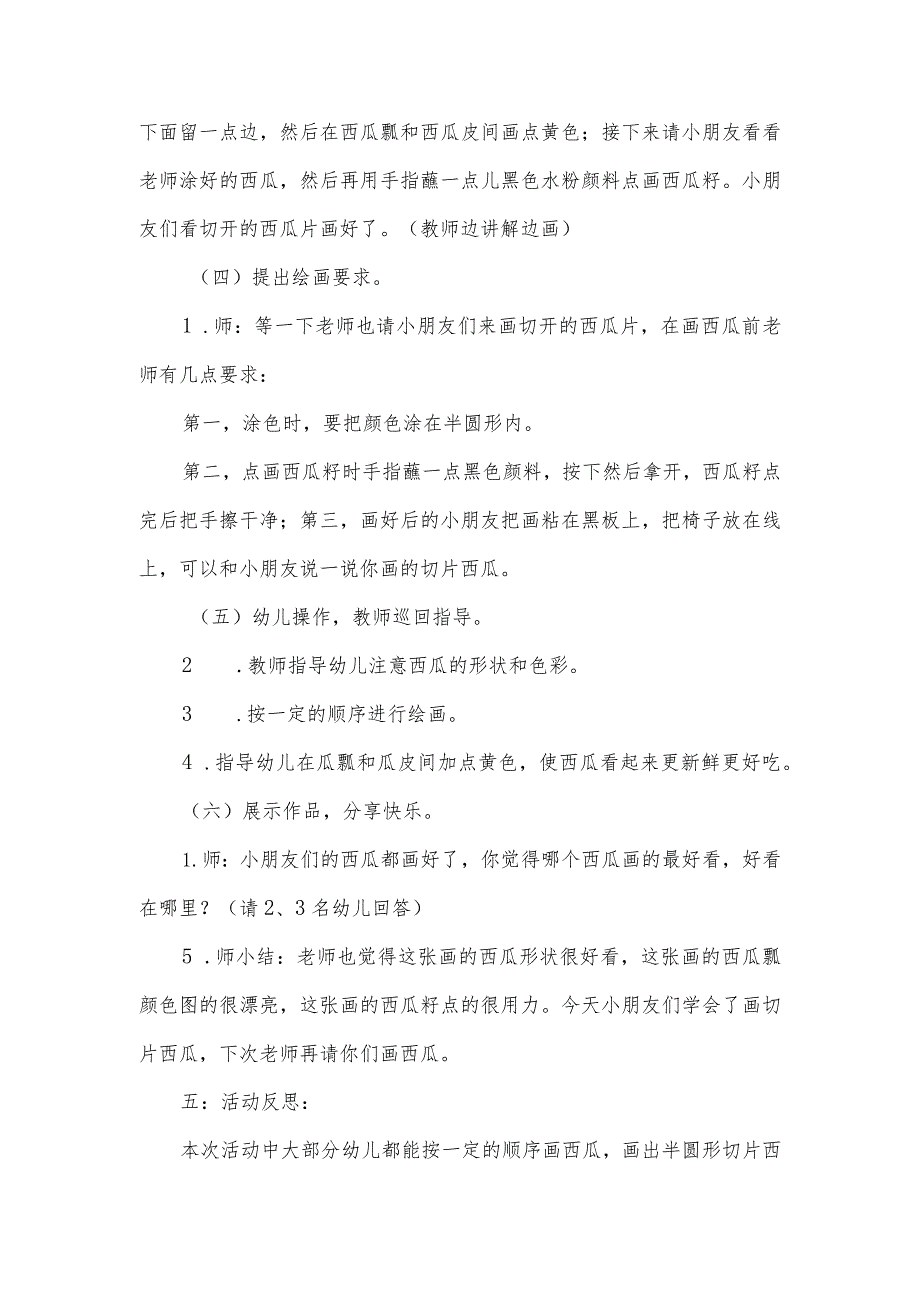 下面留一点边，然后在西瓜瓢和西瓜皮间画点黄色；接下来请小朋友看看
老师涂好的西瓜，然后再用手指蘸一点儿黑色水粉颜料点画西瓜籽。小朋
友们看切开的西瓜片画好了。（教师边讲解边画）
（四）提出绘画要求。
1 .师：等一下老师也请小朋友们来画切开的西瓜片，在画西瓜前老
师有几点要求：
第一，涂色时，要把颜色涂在半圆形内。
第二，点画西瓜籽时手指蘸一点黑色颜料，按下然后拿开，西瓜籽点
完后把手擦干净；第三，画好后的小朋友把画粘在黑板上，把椅子放在线
上，可以和小朋友说一说你画的切片西瓜。
（五）幼儿操作，教师巡回指导。
2 .教师指导幼儿注意西瓜的形状和色彩。
3 .按一定的顺序进行绘画。
4 .指导幼儿在瓜瓢和瓜皮间加点黄色，使西瓜看起来更新鲜更好吃。
（六）展示作品，分享快乐。
1.师：小朋友们的西瓜都画好了，你觉得哪个西瓜画的最好看，好看
在哪里？（请 2、3 名幼儿回答）
5 .师小结：老师也觉得这张画的西瓜形状很好看，这张画的西瓜瓢
颜色图的很漂亮，这张画的西瓜籽点的很用力。今天小朋友们学会了画切
片西瓜，下次老师再请你们画西瓜。
五：活动反思：
本次活动中大部分幼儿都能按一定的顺序画西瓜，画出半圆形切片西